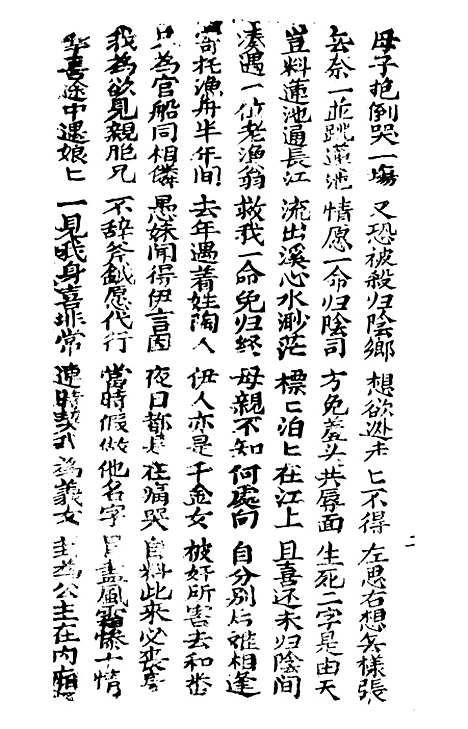 母子抱倒哭一塲 又恐被殺归陰鄉 想欲逃未匕不得 左思右想無様張
無奈一並跳蓮池 情愿一命归陰司 方免羞头共辱面 生死二字是由天
豈料蓮池通長江 流出溪心水渺茫 標匕泊匕在江上 且喜还未归陰間
凑遇一位老漁翁 救我一命免归終 母親不知何處向 自分別后难相逢
寄托漁舟半年間 去年遇着姓陶人 伊人亦是千金女 被奸所害去和番
只為官船同相憐 愚妹聞得伊言因 夜日都是在痛哭 自料此来必喪身
我為欲見親胞兄 不辞斧鉞愿代行 當時假做他名字 冒盡風霜惨十情
幸喜途中遇娘匕 一見我身喜非常 連時契我為義女 封為公主在内廂